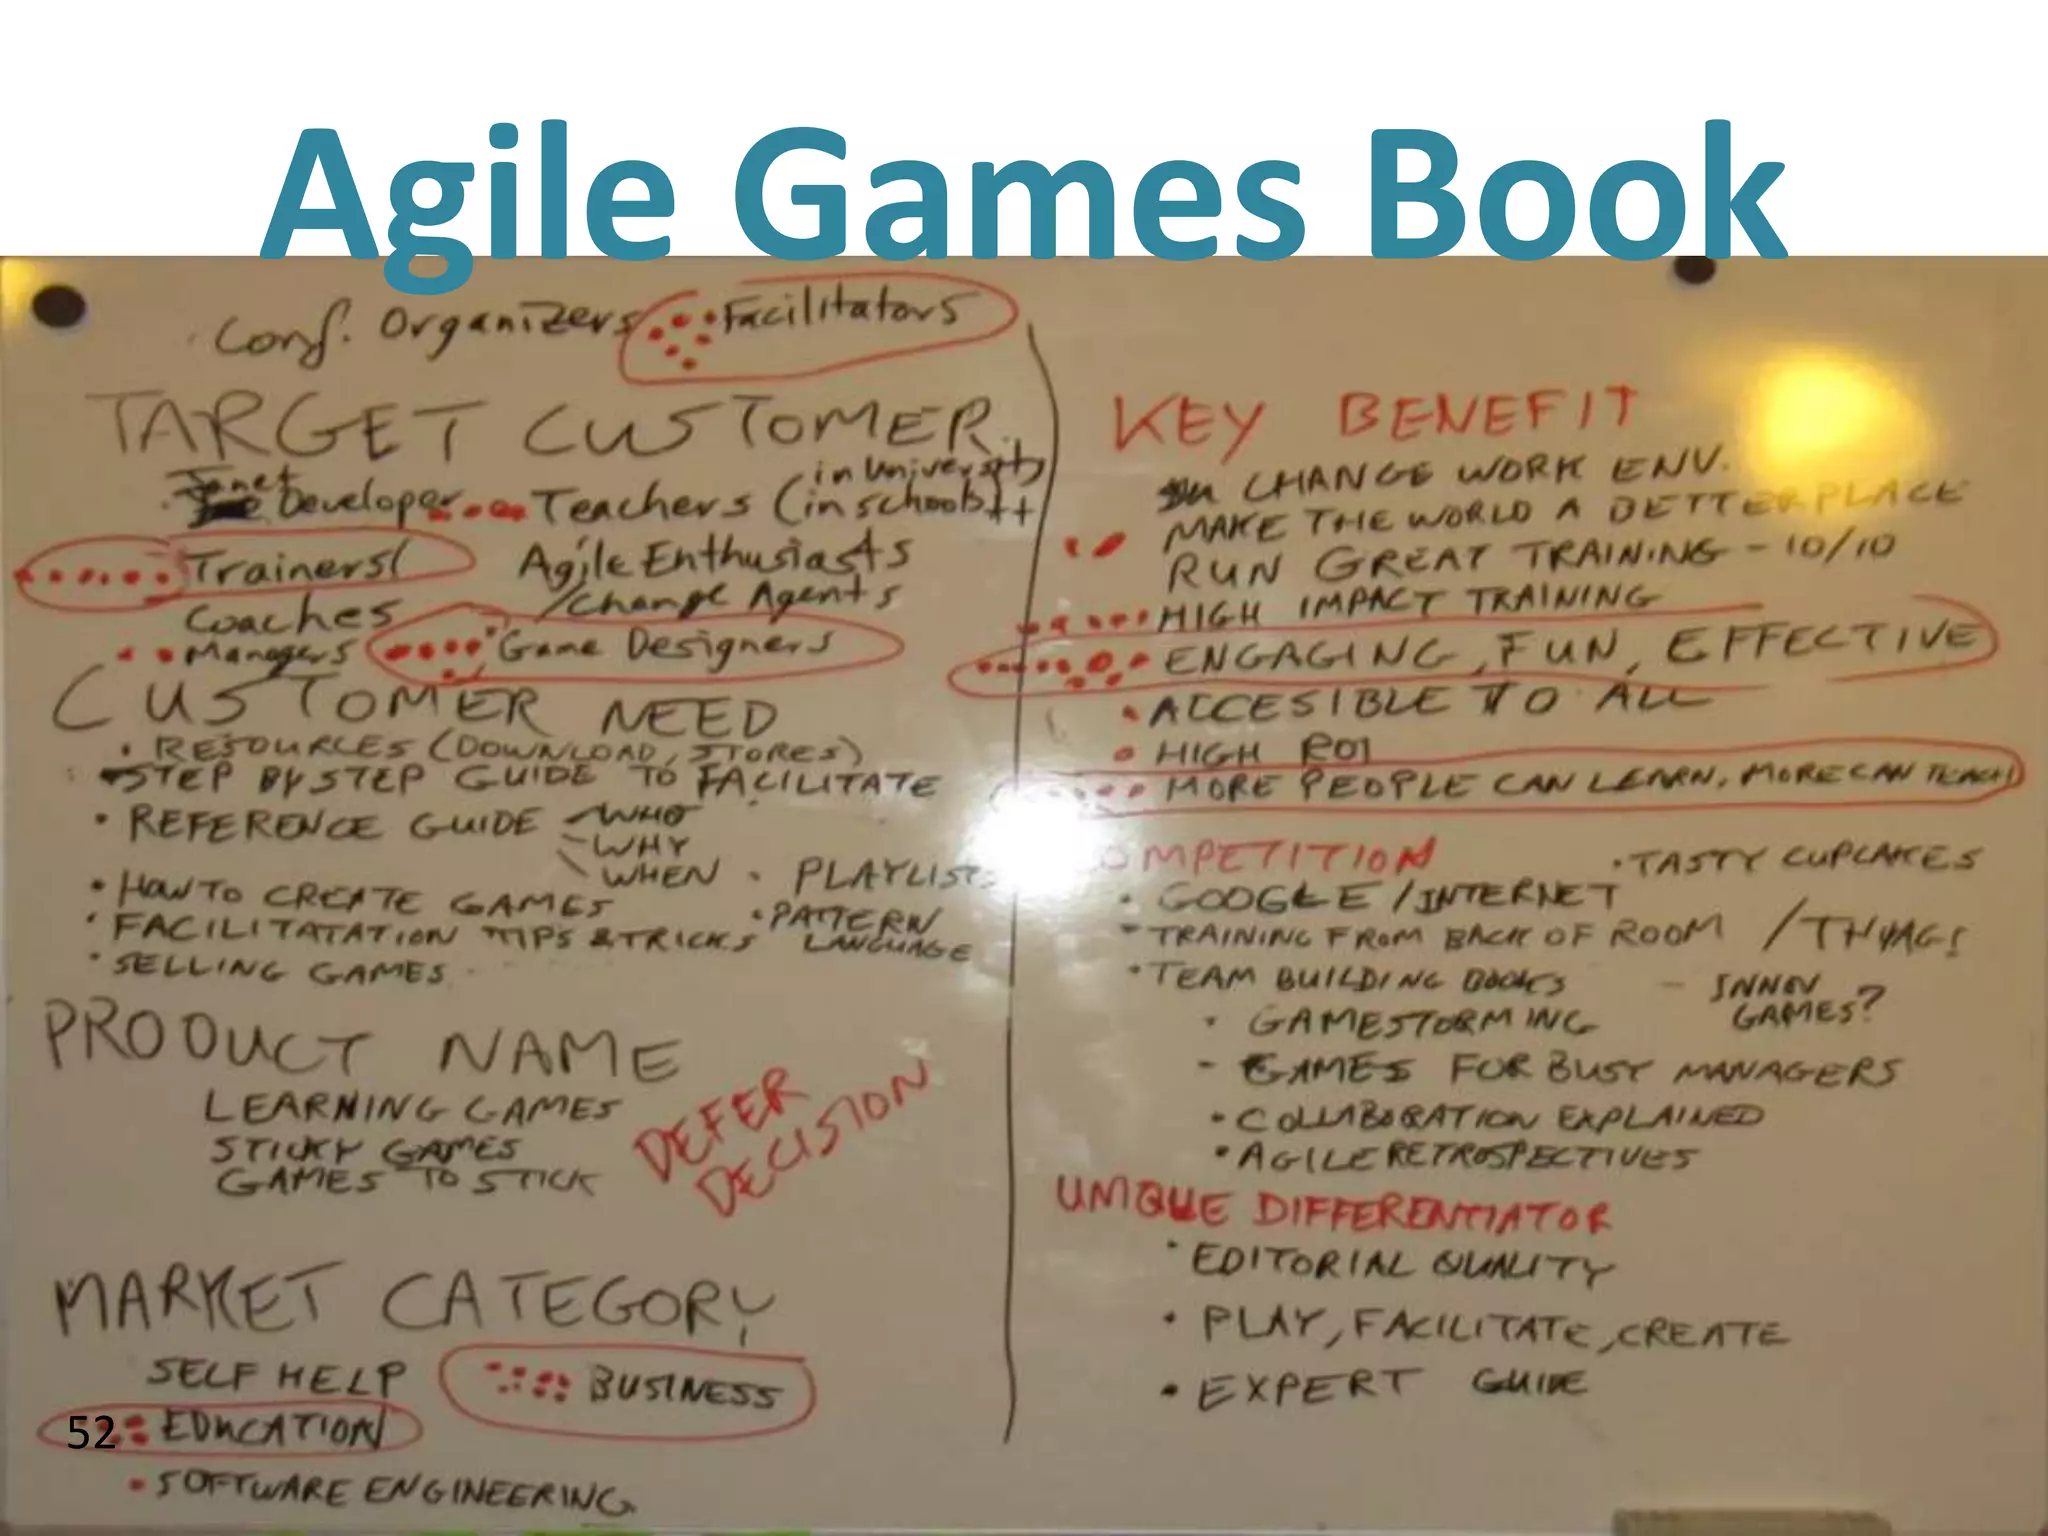 Agile Games Book
Conf. Organizers
Facilitators
TARGET CUSTOMER
Janet
Developer
Teachers (in schools ++
in University
Trainers/
Coaches
Agile Enthusiasts
/Change Agents
Managers
Game Designers
CUSTOMER NEED
• RESOURCES (DOWNLOAD, STORES)
• STEP BY STEP GUIDE TO FACILITATE
• REFERENCE GUIDE - WHO
- WHY
\ WHEN
• PLAYLISTS
• HOW TO CREATE GAMES
• PATTERN
LANGUAGE
• FACILITATATION TIPS & TRICKS
• SELLING GAMES
PRODUCT NAME
LEARNING GAMES
STICKY GAMES
GAMES TO STICK
DEFER
DECISION
MARKET CATEGORY
SELF HELP
BUSINESS
EDUCATION
• SOFTWARE ENGINEERING
52
KEY BENEFIT
CHANGE WORK ENV.
MAKE THE WORLD A BETTER PLACE
RUN GREAT TRAINING - 10/10
HIGH IMPACT TRAINING
ENGAGING, FUN, EFFECTIVE
• ACCESIBLE TO ALL
• HIGH ROI
MORE PEOPLE CAN LEARN, MORE CAN TEACH
OMPETITION
• TASTY CUPCAKES
• GOOGLE / INTERNET
- TRAINING FROM BACK OF ROOM / THIAGI
• TEAM BUILDING BOOKS
- INNOV
GAMES?
• GAMESTORMING
- GAMES FOR BUSY MANAGERS
• COLLABORATION EXPLAINED
• AGILE RETROSPECTIVES
UNIQUE DIFFERENTIATOR
• EDITORIAL QUALITY
• PLAY, FACILITATE, CREATE
• EXPERT GUIDE